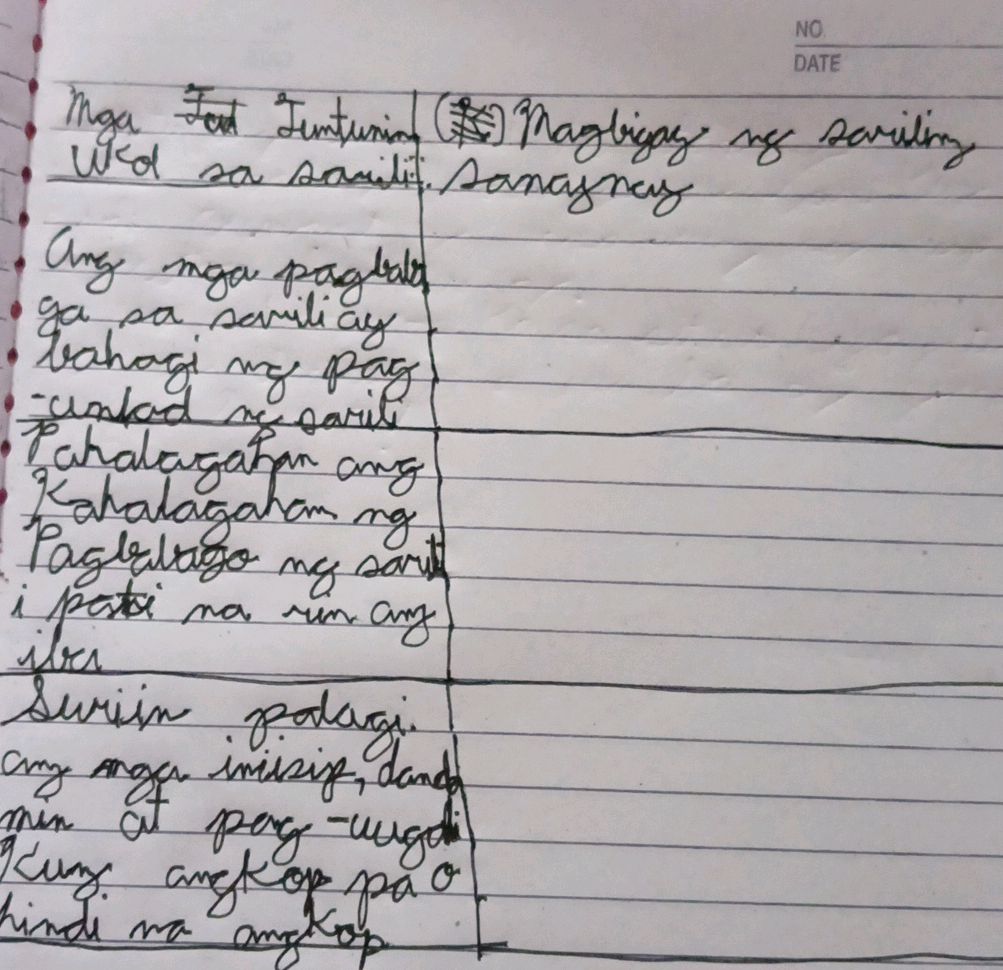 NO
DATE
Mga Tuntunin
Ukol sa sarili.
Magbigay ng sariling
Sanaynay
Ang mga pagbaba
ga sa sarili ay
bahagi ng pag
-unlad ng sarili
Pahalagahan ang
Kahalagahan ng
Pagbabago ng saril
i pati na rin ang
iba
Suriin palagi.
ang mga iniisip, damda
min at pag-uugali
Kung angkop pa o
hindi na angkop